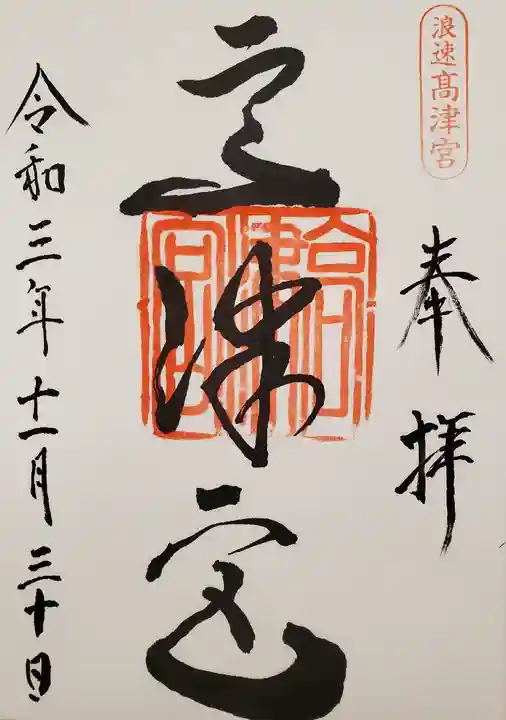 浪速高津宮
奉拝
高津宮
高津宮
令和三年十一月三十日